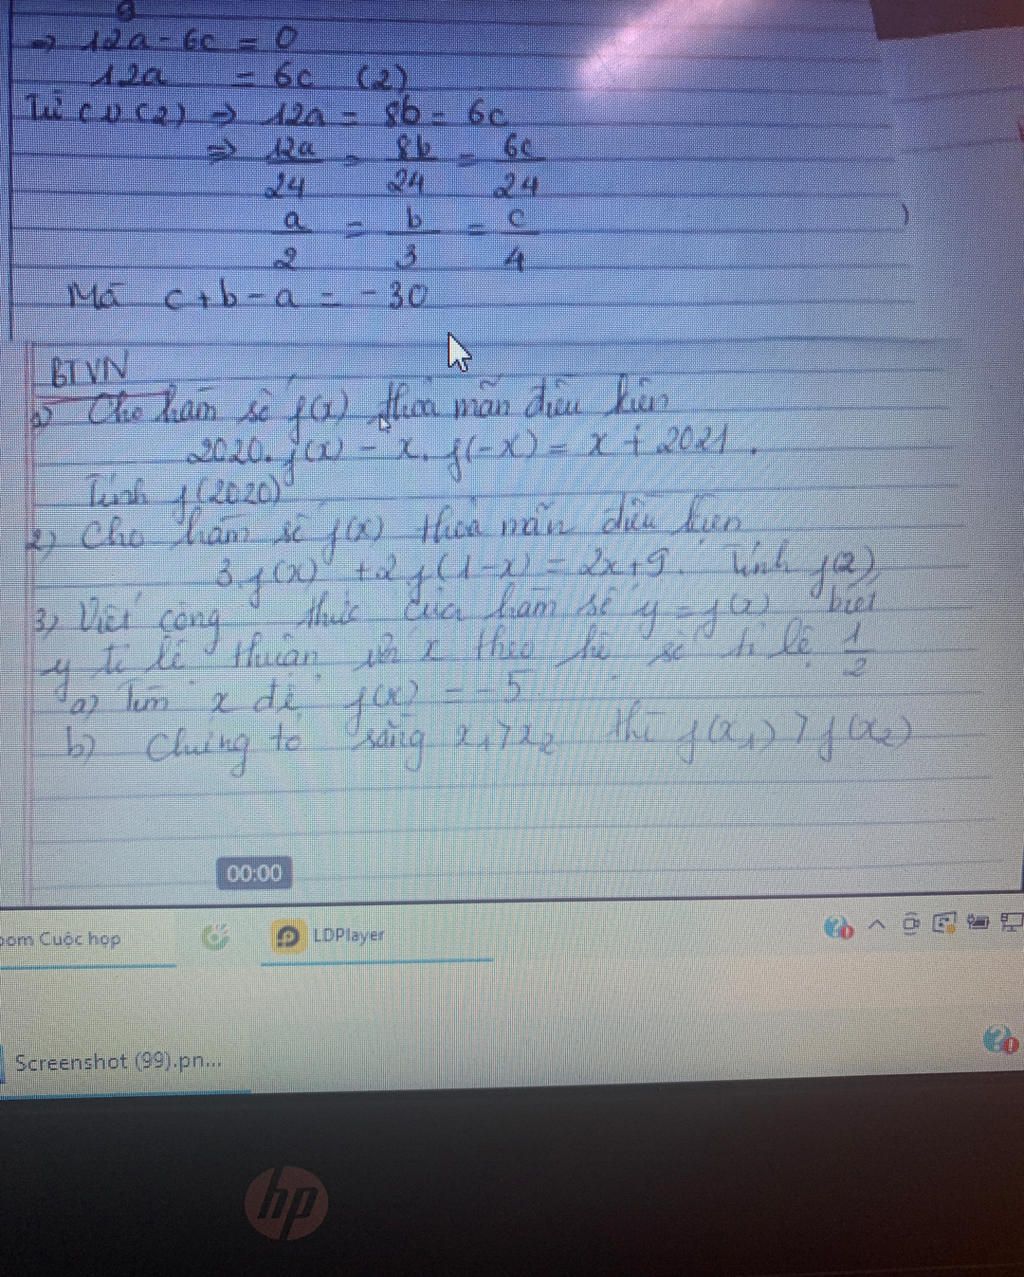 => 12a - 6c = 0
12a = 6c (2)
Từ (1) (2) => 12a = 8b = 6c
=> 12a/24 = 8b/24 = 6c/24
a/2 = b/3 = c/4
Mà c + b - a = -30
BTVN
Cho hàm số f(x) thỏa mãn điều kiện
2020. f(x) - x. f(-x) = x + 2021.
Tính f(2020)
2) Cho hàm số f(x) thỏa mãn điều kiện
3.f(x) + 2f(1-x) = 2x+9. Tính f(2)
3) Viết công thức của hàm số y = f(x) biết
y tỉ lệ thuận với x theo hệ số tỉ lệ 1/2
a) Tìm x để f(x) = -5
b) Chứng tỏ rằng x₁ > x₂ thì f(x₁) > f(x₂)
00:00
oom Cuộc họp
LDPlayer
Screenshot (99).pn...
hp